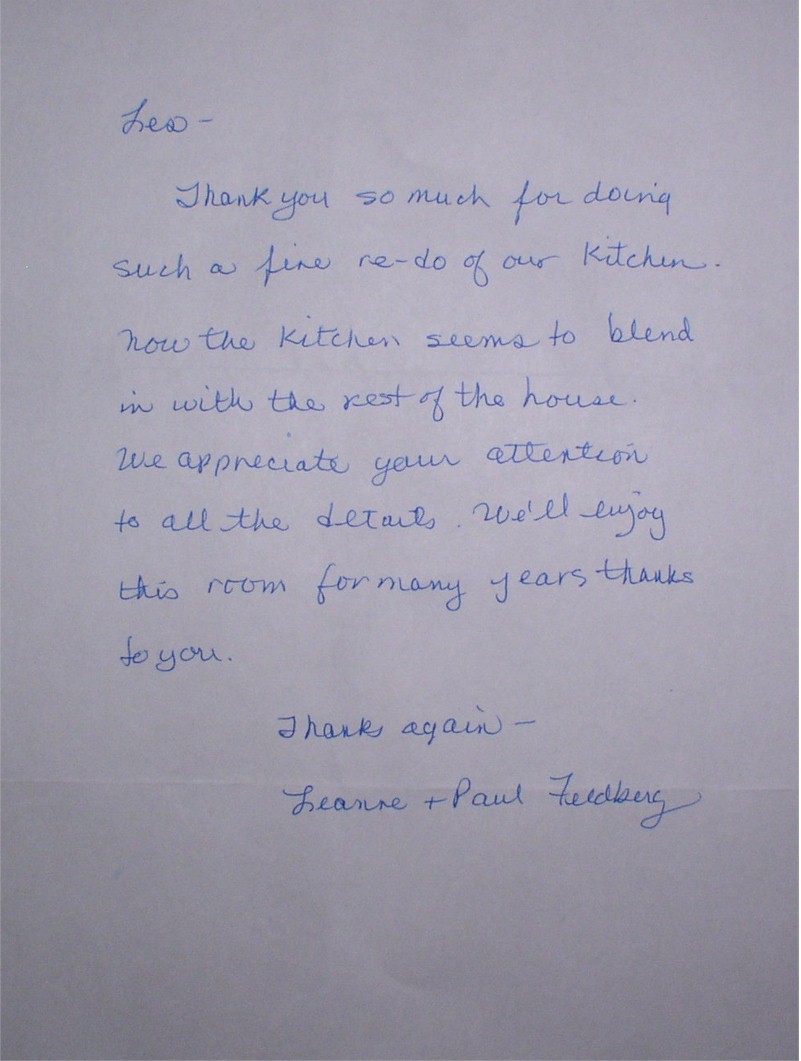 Leo -
Thank you so much for doing
such a fine re-do of our kitchen.
Now the kitchen seems to blend
in with the rest of the house.
We appreciate your attention
to all the details. We'll enjoy
this room for many years thanks
to you.
Thanks again -
Leanne + Paul Feldberg